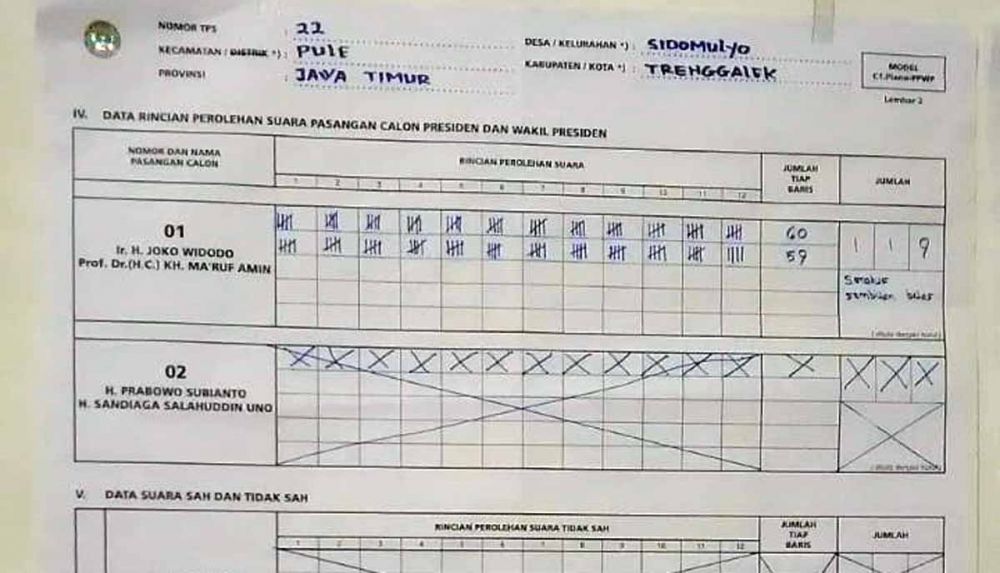 NOMOR TPS : 22
KECAMATAN / DISTRIK *) : PULE
PROVINSI : JAWA TIMUR
DESA / KELURAHAN *) : SIDOMULYO
KABUPATEN / KOTA *) : TRENGGALEK
MODEL
C1.Plano-PPWP
Lembar 2
IV. DATA RINCIAN PEROLEHAN SUARA PASANGAN CALON PRESIDEN DAN WAKIL PRESIDEN
NOMOR DAN NAMA
PASANGAN CALON
RINCIAN PEROLEHAN SUARA
1 2 3 4 5 6 7 8 9 10 11 12
JUMLAH
TIAP
BARIS
JUMLAH
01
Ir. H. JOKO WIDODO
Prof. Dr.(H.C.) KH. MA'RUF AMIN
60
59
1 1 9
Seratus
sembilan belas
(ditulis dengan huruf)
02
H. PRABOWO SUBIANTO
H. SANDIAGA SALAHUDDIN UNO
X X X X X X X X X X X X X X X X
(ditulis dengan huruf)
V. DATA SUARA SAH DAN TIDAK SAH
RINCIAN PEROLEHAN SUARA TIDAK SAH
1 2 3 4 5 6 7 8 9 10 11 12
JUMLAH
TIAP
BARIS
JUMLAH